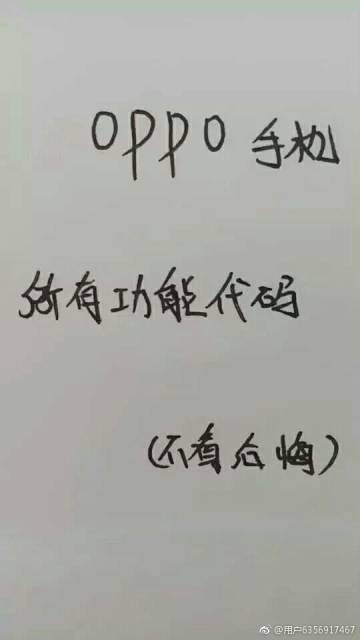 OPPO 手机
所有功能代码
(不看后悔)
@用户6356917467